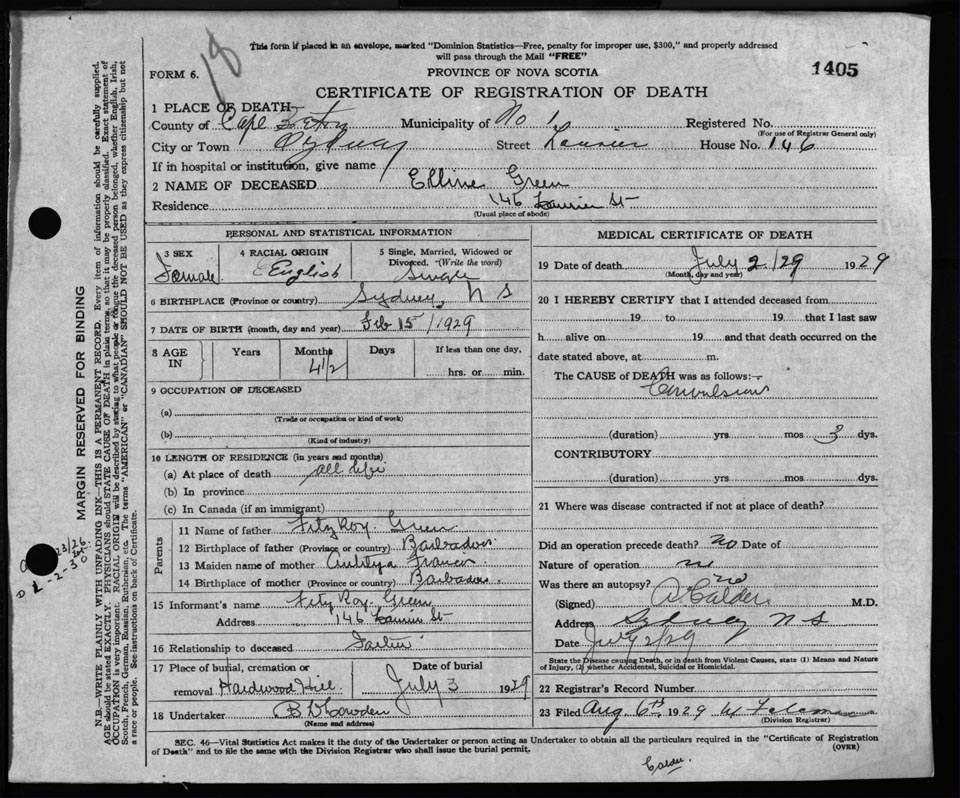 18
This form if placed in an envelope, marked "Dominion Statistics—Free, penalty for improper use, $300," and properly addressed
will pass through the Mail "FREE"
FORM 6.
PROVINCE OF NOVA SCOTIA
1405
CERTIFICATE OF REGISTRATION OF DEATH
1 PLACE OF DEATH—
County of Cape Breton Municipality of No 1 Registered No.
(For use of Registrar General only)
City or Town Sydney Street Laurier House No. 146
If in hospital or institution, give name
2 NAME OF DECEASED Elline Green
Residence 146 Laurier St
(Usual place of abode)
PERSONAL AND STATISTICAL INFORMATION
3 SEX 4 RACIAL ORIGIN 5 Single, Married, Widowed or
Divorced. (Write the word)
Female English Single
6 BIRTHPLACE (Province or country) Sydney, N S
7 DATE OF BIRTH (month, day and year) Feb 15/1929
8 AGE IN Years Months Days If less than one day,
4 1/2 hrs. or min.
9 OCCUPATION OF DECEASED
(a)
(Trade or occupation or kind of work)
(b)
(Kind of industry)
10 LENGTH OF RESIDENCE (in years and months)
(a) At place of death all life
(b) In province
(c) In Canada (if an immigrant)
Parents
11 Name of father Fitz Roy Green
12 Birthplace of father (Province or country) Barbados
13 Maiden name of mother
14 Birthplace of mother (Province or country) Barbados
15 Informant's name Fitz Roy Green
Address 146 Laurier St
16 Relationship to deceased
17 Place of burial, cremation or
removal Hardwood Hill
Date of burial
July 3 1929
18 Undertaker
(Name and address)
MEDICAL CERTIFICATE OF DEATH
19 Date of death July 2/29 1929
(Month, day and year)
20 I HEREBY CERTIFY that I attended deceased from
19 to 19 that I last saw
h alive on 19 and that death occurred on the
date stated above, at m.
The CAUSE of DEATH was as follows:—
Convulsions
(duration) yrs. mos 3 dys.
CONTRIBUTORY
(duration) yrs. mos. dys.
21 Where was disease contracted if not at place of death?
Did an operation precede death? no Date of
Nature of operation
Was there an autopsy? no
(Signed) Calder M.D.
Address Sydney N S
Date July 2/29
State the Disease causing Death, or in death from Violent Causes, state (1) Means and Nature
of Injury, (2) whether Accidental, Suicidal or Homicidal.
22 Registrar's Record Number
23 Filed Aug 6th 1929
(Division Registrar)
SEC. 46—Vital Statistics Act makes it the duty of the Undertaker or person acting as Undertaker to obtain all the particulars required in the "Certificate of Registration
of Death" and to file the same with the Division Registrar who shall issue the burial permit.
(OVER)
Calder.
MARGIN RESERVED FOR BINDING
N.B.—WRITE PLAINLY WITH UNFADING INK—THIS IS A PERMANENT RECORD. Every item of information should be carefully supplied.
AGE should be stated EXACTLY. PHYSICIANS should STATE CAUSE OF DEATH in plain terms, so that it may be properly classified. Exact statement of
OCCUPATION is very important. RACIAL ORIGIN will be described by stating to what people or tongue the deceased person belonged, whether English, Irish,
Scotch, French, German, Russian, Ruthenian, etc. The terms "AMERICAN" or "CANADIAN" SHOULD NOT BE USED as they express citizenship but not
a race or people. See instructions on back of Certificate.